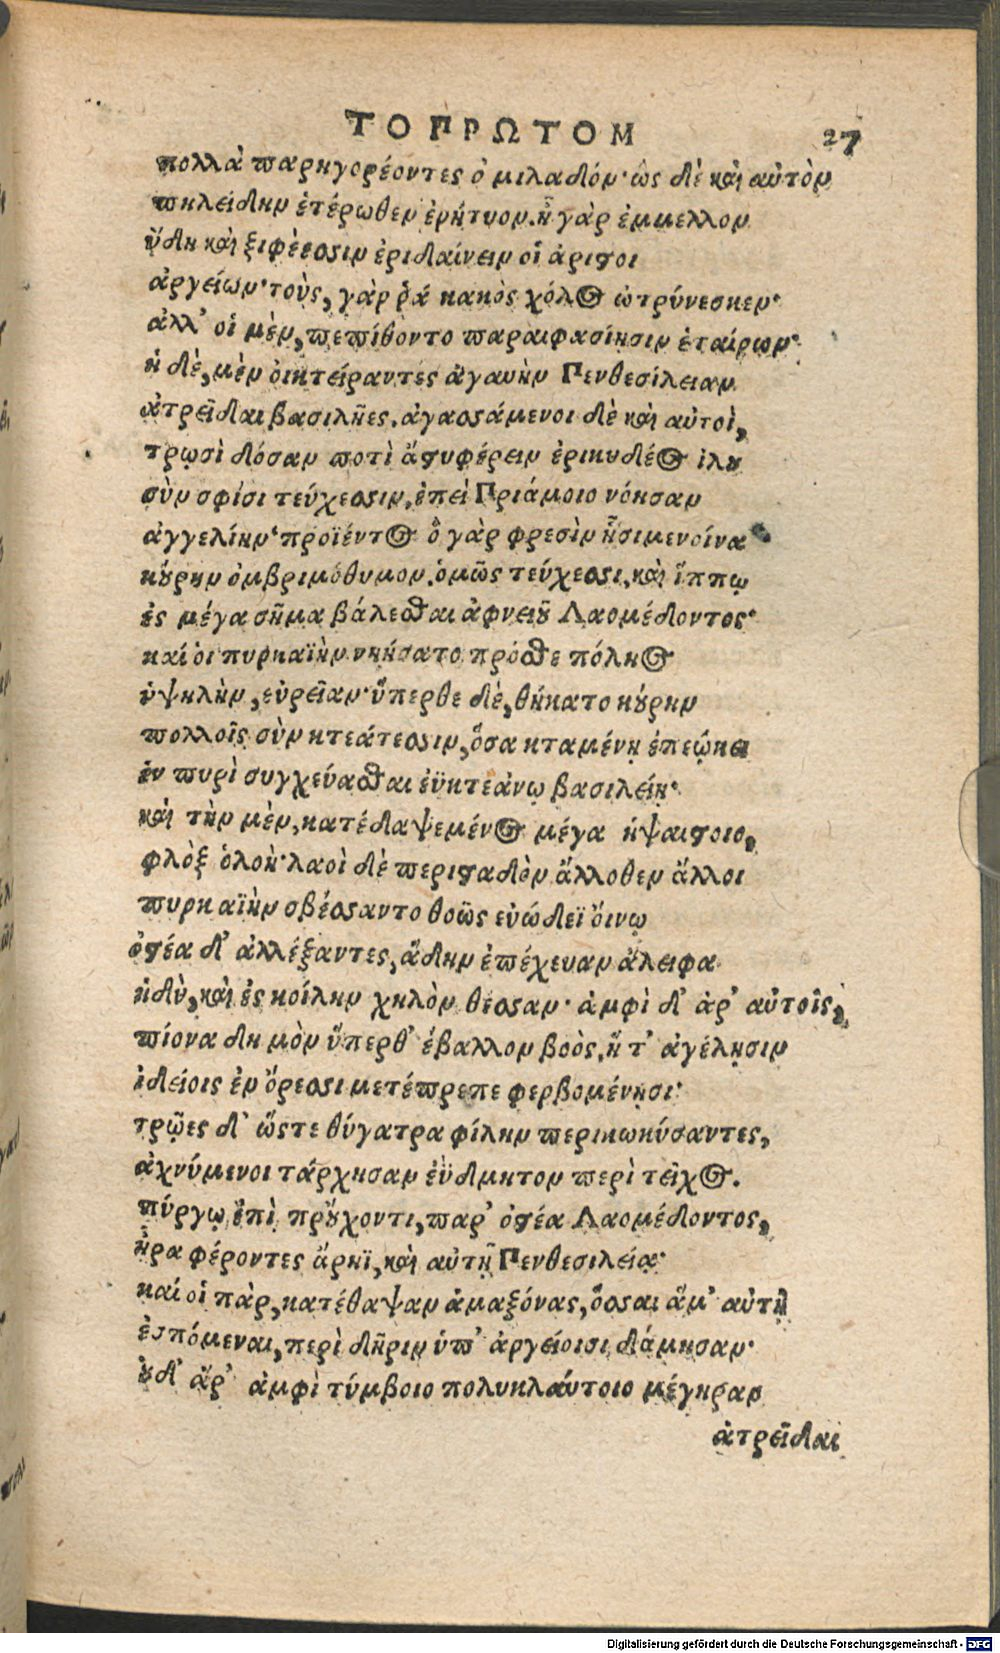 ΤΟ ΠΡΩΤΟΝ 27
πολλὰ παρηγορέοντες ὁ μιλαδόν· ὣς δὲ καὶ αὐτὸν
πηλείδην ἑτέρωθεν ἐρήτυον. ἦ γὰρ ἐμμελλον
ἤδη καὶ ξιφέεσσιν ἐριδαίνειν οἱ ἄριστοι
ἀργείων· τοὺς, γὰρ ῥά κακὸς χόλος ὠτρύνεσκεν·
ἀλλ' οἱ μὲν, πεπίθοντο παραιφασίῃσιν ἑταίρων·
ἡ δὲ, μὲν ὀικτείραντες ἀγαυὴν Πενθεσίλειαν
ἀτρεῖδαι βασιλῆες. ἀγασσάμενοι δὲ καὶ αὐτοὶ,
τρωσὶ δόσαν ποτὶ ἄστυφέρειν ἐρικυδέος ἰλου
σὺν σφίσι τεύχεσσιν, ἐπεὶ Πριάμοιο νόησαν
ἀγγελίην· προϊέντος ὃ γὰρ φρεσὶν ᾗσιμενοίνα
κούρην ὀμβριμόθυμον. ὁμῶς τεύχεσσι, καὶ ἵππῳ
ἐς μέγα σῆμα βάλεσθαι ἀφνειοῦ Λαομέδοντος·
καί ὁι πυρκαϊὴν νηήσατο πρόσθε πόληος
ὑψηλὴν, εὐρεῖαν· ὕπερθε δὲ, θήκατο κούρην
πολλοῖς σὺν κτεάτεσσιν, ὅσα κταμένῃ ἐπεῴκει
ἐν πυρὶ συγχεύασθαι ἐϋκτεάνῳ βασιλείῃ·
καὶ τὴν μὲν, κατέδαψεμένος μέγα ἡψαιστοιο,
φλὸξ ὀλοὴ· λαοὶ δὲ περισταδὸν ἄλλοθεν ἄλλοι
πυρκαϊὴν σβέσσαντο θοῶς εὐώδεϊ ὄινῳ
ὀστέα δ' ἀλλέξαντες, ἄδην ἐπέχευαν ἄλειφα
ἡδὺ, καὶ ἐς κοίλην χηλὸν θέσσαν· ἀμφὶ δ' ἀρ' αὐτοῖς,
πίονα δη μὸν ὕπερθ' ἔβαλλον βοὸς, ἥ τ' ἀγέλῃσιν
ἰδείοις ἐν ὄρεσσι μετέπρεπε φερβομένῃσι·
τρῶες δ' ὥςτε θύγατρα φίλην περικωκύσαντες,
ἀχνύμενοι τάρχησαν ἐΰδμητον περὶ τεῖχος.
πύργῳ ἔπὶ προὔχοντι, παρ' ὀστέα Λαομέδοντος,
ἦρα φέροντες ἄρηϊ, καὶ αὐτῇ Πενθεσιλείᾳ·
καί οἱ πὰρ, κατέθαψαν ἀμαξόνας, ὅσσαι ἅμ' αὐτῇ
ἑσπόμεναι, περὶ δῆριν ὑπ' ἀργείοισι δάμησαν·
οὐδ' ἄρ' ἀμφὶ τύμβοιο πολυκλαύτοιο μέγηραν
ἀτρεῖδαι
Digitalisierung gefördert durch die Deutsche Forschungsgemeinschaft - DFG